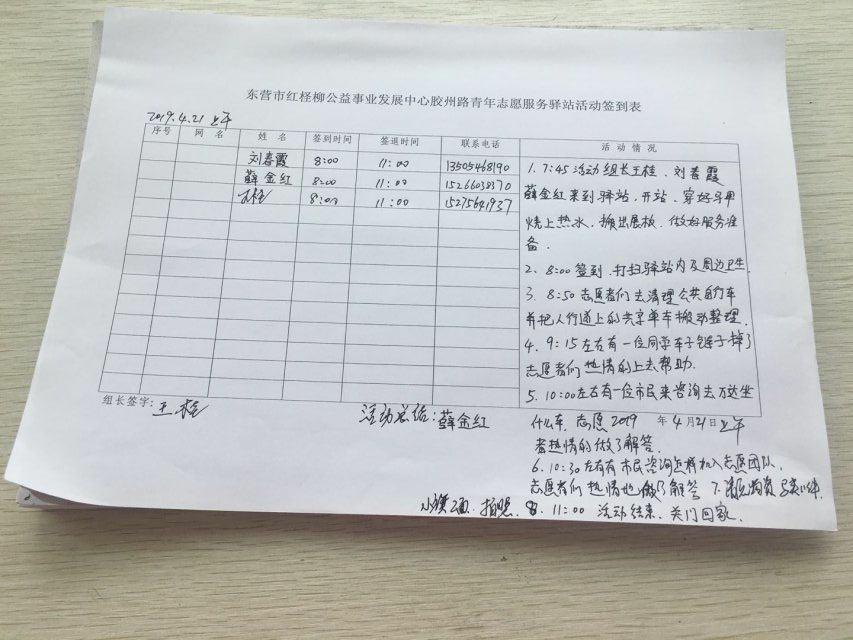 东营市红柽柳公益事业发展中心胶州路青年志愿服务驿站活动签到表
2019.4.21 上午
序号 网 名 姓 名 签到时间 签退时间 联系电话 活 动 情 况
刘春霞 8:00 11:00 13505468190
薛金红 8:00 11:00 15266038370
王桂 8:00 11:00 15275641937
1. 7:45 活动组长王桂. 刘春霞
薛金红来到驿站. 开站. 穿好马甲
烧上热水. 搬出展板. 做好服务准
备.
2. 8:00 签到. 打扫驿站内及周边卫生.
3. 8:50 志愿者们去清理公共自行车
并把人行道上的共享单车搬动整理.
4. 9:15左右有一位同学车子链子掉了
志愿者们热情的上去帮助.
5. 10:00左右有一位市民来咨询去万达坐
组长签字: 王桂 活动总结: 薛金红 什么车. 志愿 2019 年 4 月 21 日 上午
者热情的做了解答.
6. 10:30左右有市民咨询怎样加入志愿团队.
志愿者们热情地做了解答 7.
拍照. 8. 11:00 活动结束. 关门回家.